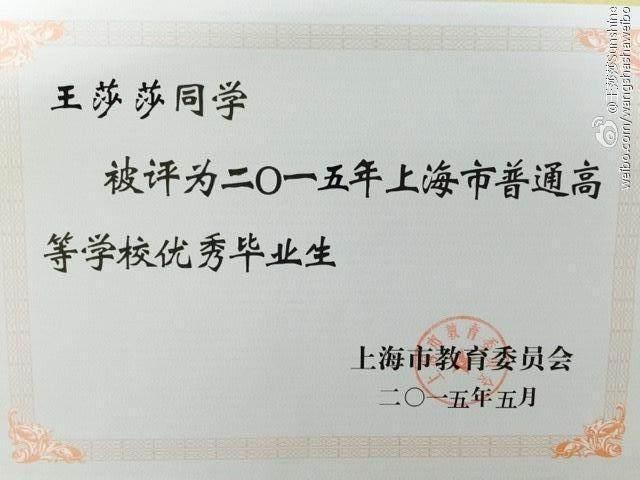 王莎莎同学
被评为二〇一五年上海市普通高
等学校优秀毕业生
上海市教育委员会
二〇一五年五月
上海市教育委员会
@王莎莎sunshine
weibo.com/wangshashaweibo